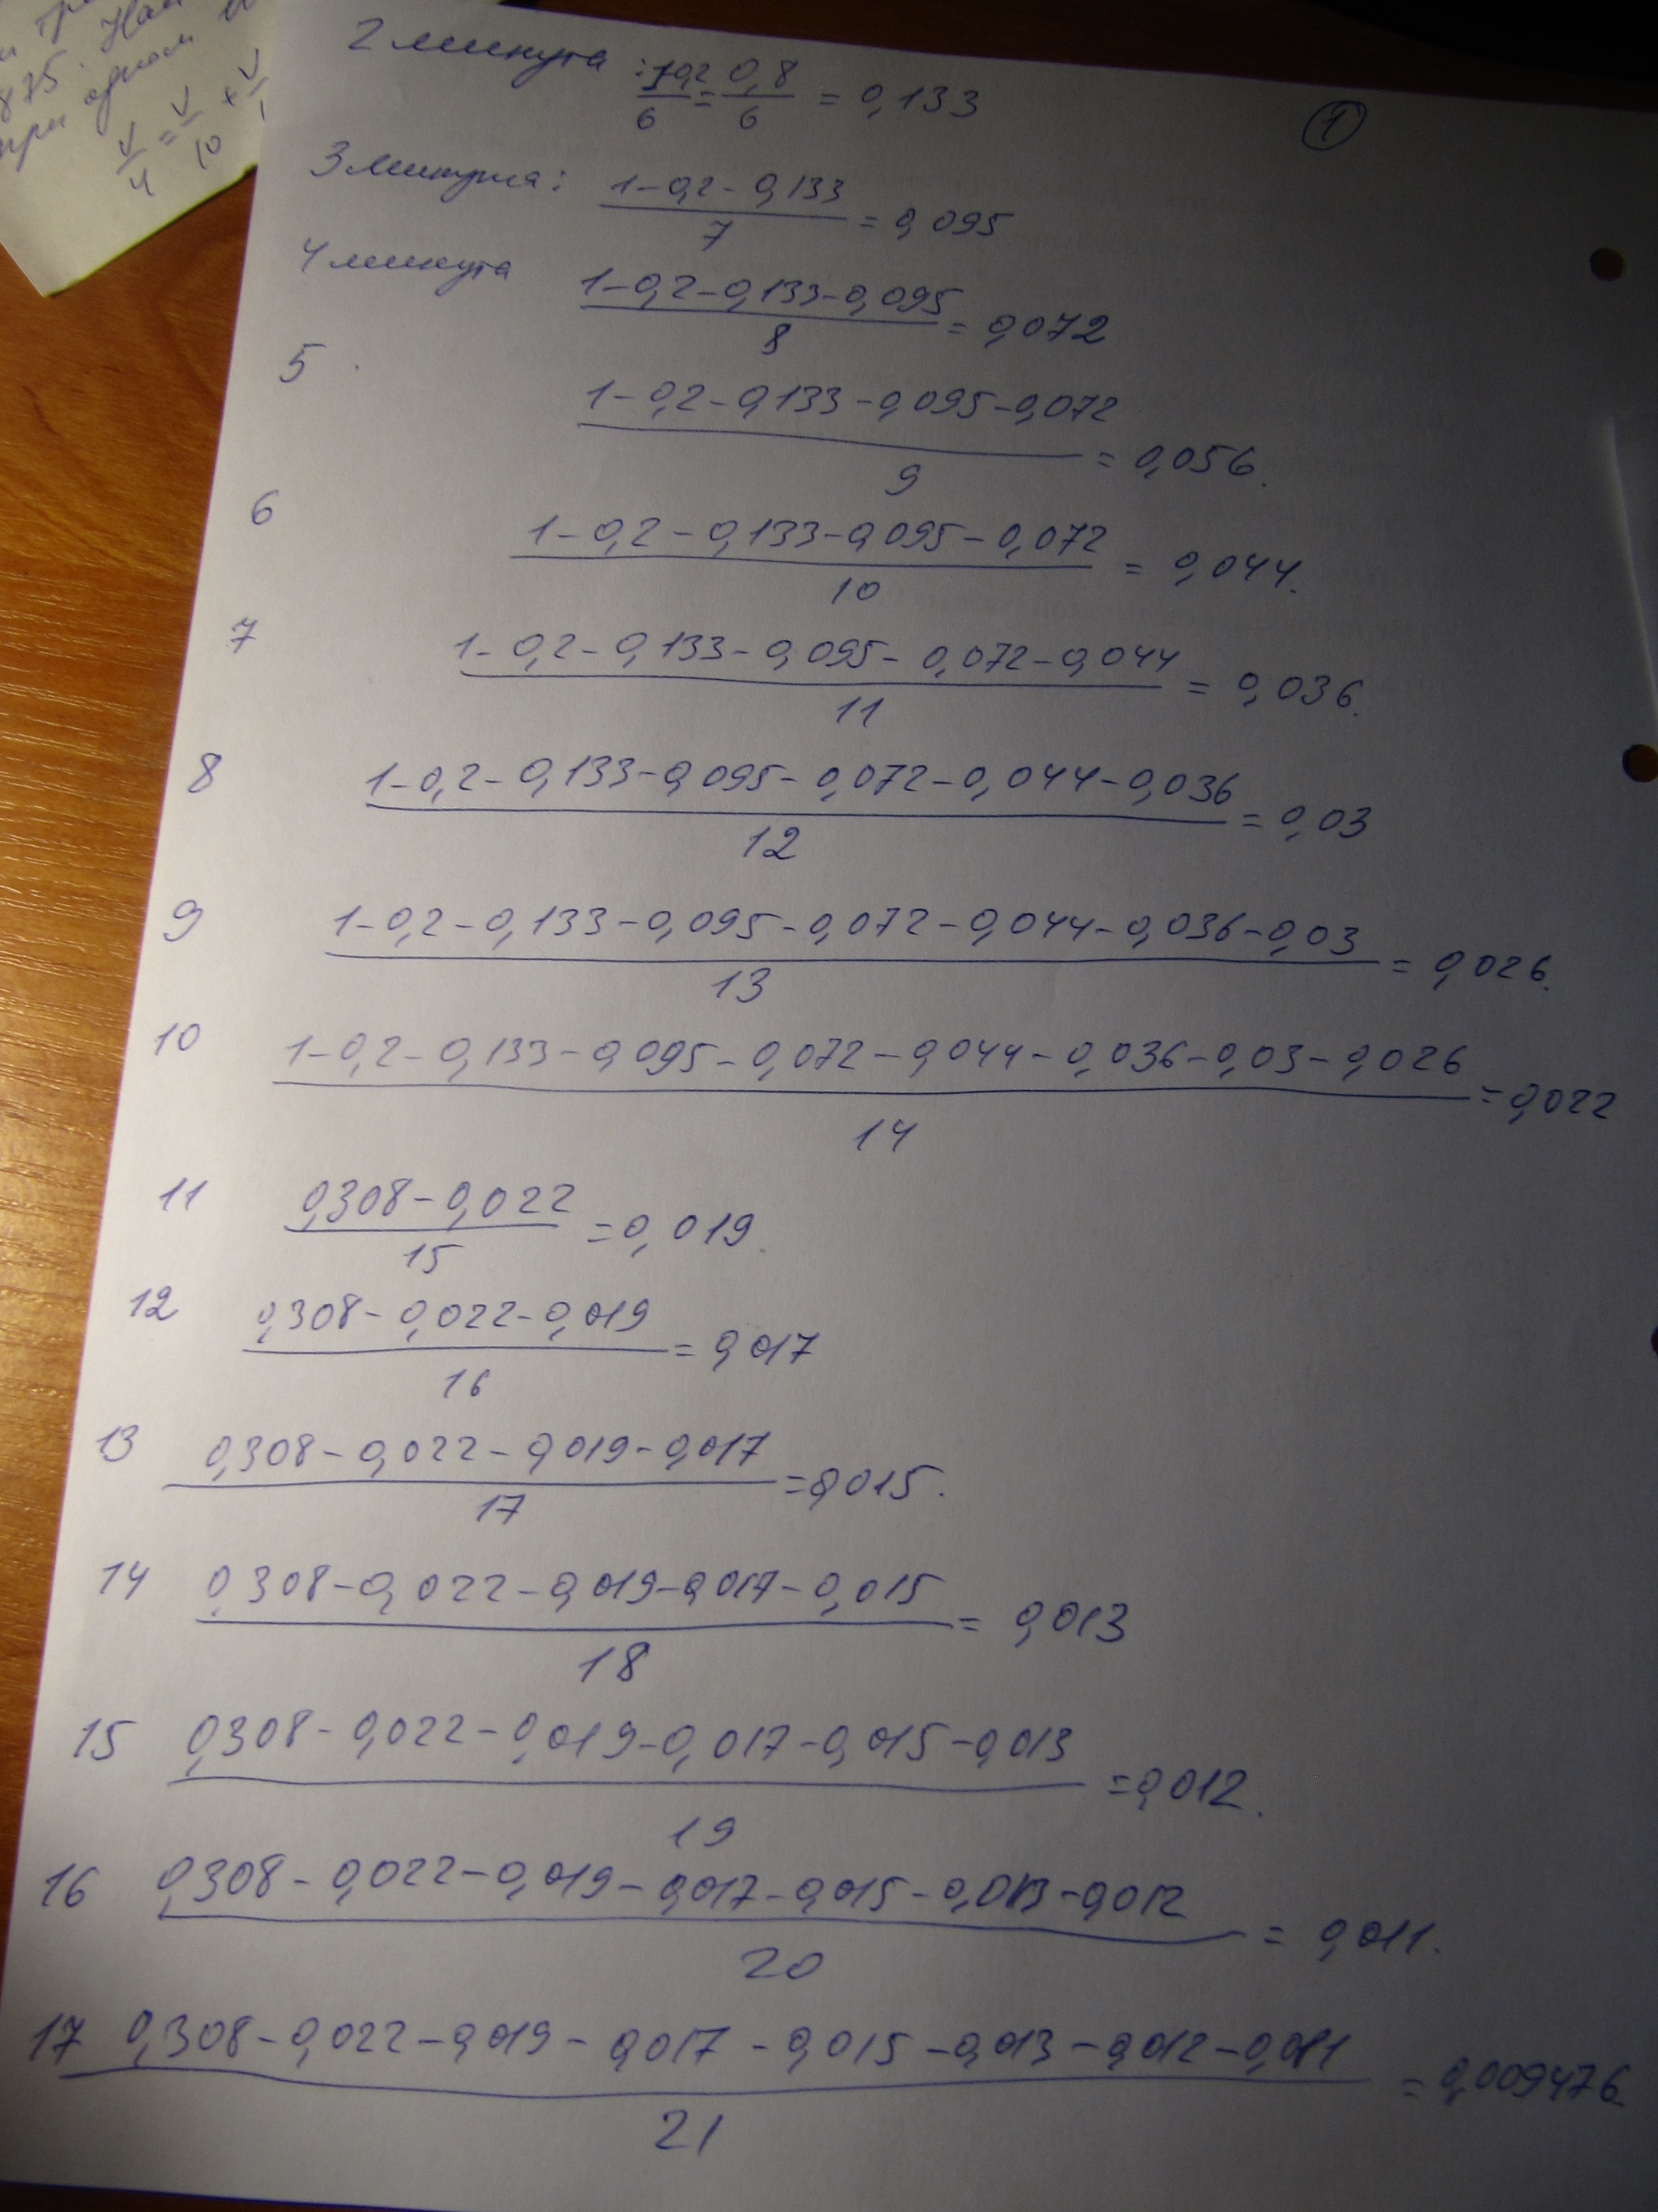 875.
при одном
V/4 = V/10 + V/1
①
2 минута : 1-0,2/6 = 0,8/6 = 0,133
3 минута: 1-0,2-0,133/7 = 0,095
4 минута 1-0,2-0,133-0,095/8 = 0,072
5 1-0,2-0,133-0,095-0,072/9 = 0,056.
6 1-0,2-0,133-0,095-0,072/10 = 0,044.
7 1-0,2-0,133-0,095-0,072-0,044/11 = 0,036.
8 1-0,2-0,133-0,095-0,072-0,044-0,036/12 = 0,03
9 1-0,2-0,133-0,095-0,072-0,044-0,036-0,03/13 = 0,026.
10 1-0,2-0,133-0,095-0,072-0,044-0,036-0,03-0,026/14 = 0,022
11 0,308-0,022/15 = 0,019.
12 0,308-0,022-0,019/16 = 0,017
13 0,308-0,022-0,019-0,017/17 = 0,015.
14 0,308-0,022-0,019-0,017-0,015/18 = 0,013
15 0,308-0,022-0,019-0,017-0,015-0,013/19 = 0,012.
16 0,308-0,022-0,019-0,017-0,015-0,013-0,012/20 = 0,011.
17 0,308-0,022-0,019-0,017-0,015-0,013-0,012-0,011/21 = 0,009476